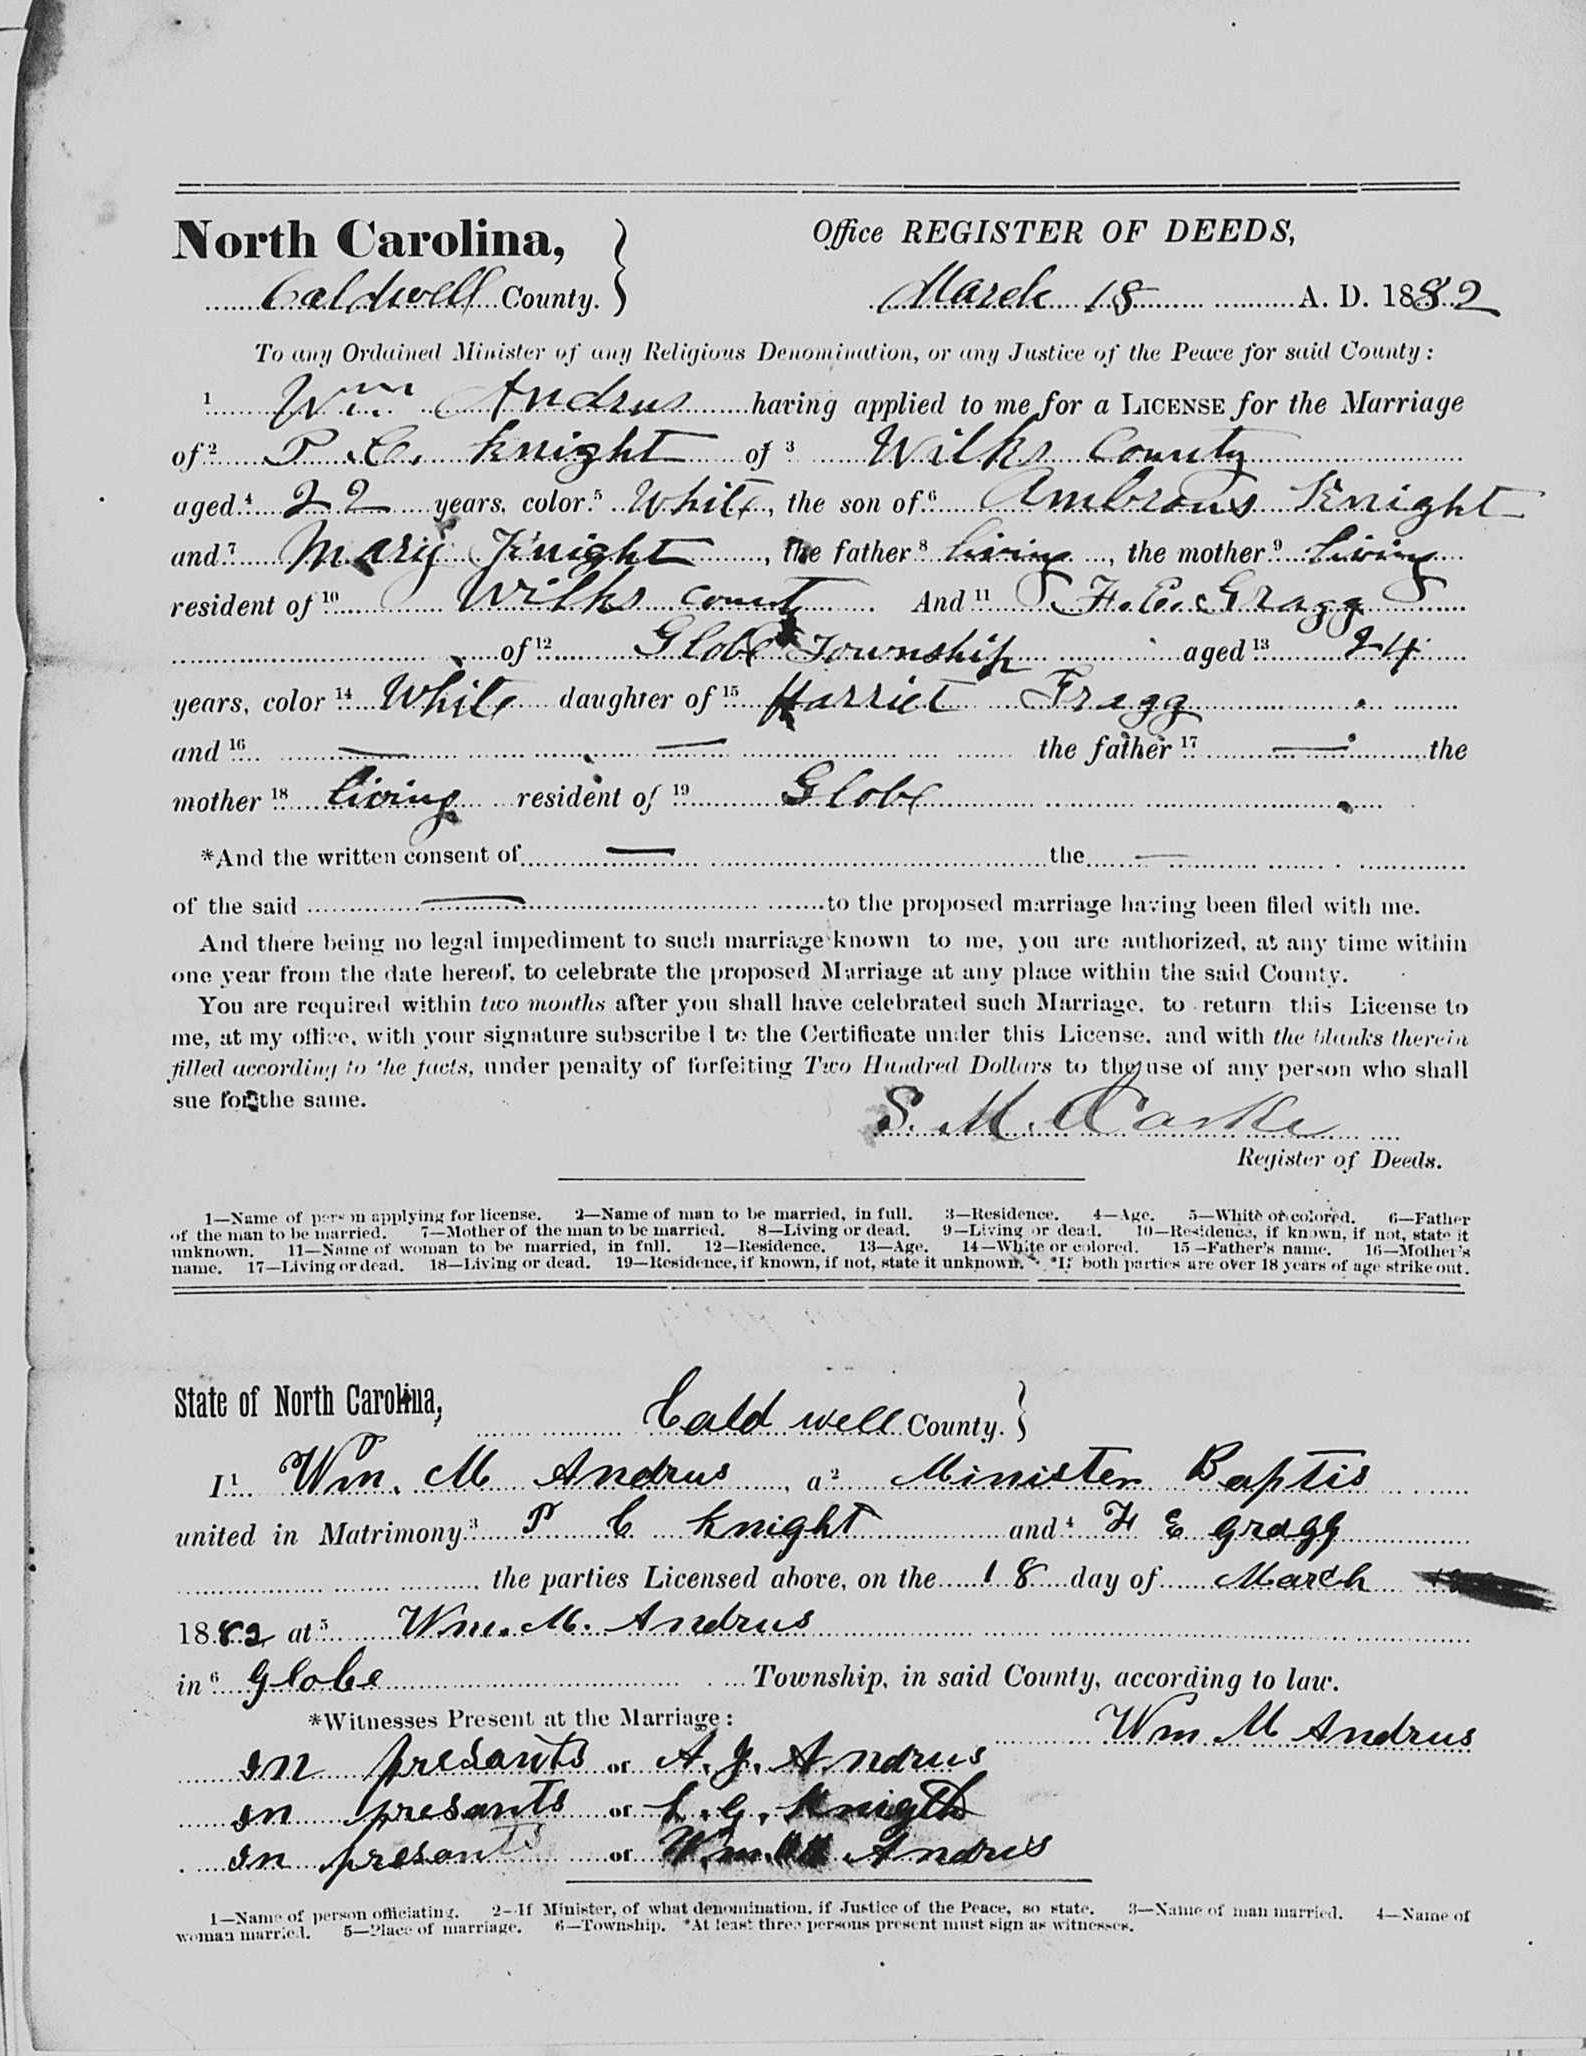 North Carolina,
Caldwell County.
Office REGISTER OF DEEDS,
March 18 A. D. 1882
To any Ordained Minister of any Religious Denomination, or any Justice of the Peace for said County:
1 Wm Andrus having applied to me for a LICENSE for the Marriage
of 2 P. C. Knight of 3 Wilks County
aged 4 22 years, color 5 White, the son of 6 Ambrous Knight
and 7 Mary Knight, the father 8 living, the mother 9 living
resident of 10 Wilks county. And 11 F. E. Gragg
of 12 Globe Township aged 13 24
years, color 14 White daughter of 15 Harriet Gragg
and 16 — — the father 17 — the
mother 18 living resident of 19 Globe
*And the written consent of — the —
of the said — to the proposed marriage having been filed with me.
And there being no legal impediment to such marriage known to me, you are authorized, at any time within
one year from the date hereof, to celebrate the proposed Marriage at any place within the said County.
You are required within two months after you shall have celebrated such Marriage, to return this License to
me, at my office, with your signature subscribed to the Certificate under this License, and with the blanks therein
filled according to the facts, under penalty of forfeiting Two Hundred Dollars to the use of any person who shall
sue for the same.
S. M.
Register of Deeds.
1—Name of person applying for license. 2—Name of man to be married, in full. 3—Residence. 4—Age. 5—White or colored. 6—Father
of the man to be married. 7—Mother of the man to be married. 8—Living or dead. 9—Living or dead. 10—Residence, if known, if not, state it
unknown. 11—Name of woman to be married, in full. 12—Residence. 13—Age. 14—White or colored. 15—Father's name. 16—Mother's
name. 17—Living or dead. 18—Living or dead. 19—Residence, if known, if not, state it unknown. *If both parties are over 18 years of age strike out.
State of North Carolina,
Caldwell County.
I 1 Wm. M Andrus, a 2 Minister Baptis
united in Matrimony 3 P C Knight and 4 F E gragg
the parties Licensed above, on the 18 day of March
1882 at 5 Wm. M. Andrus
in 6 Globe Township, in said County, according to law.
*Witnesses Present at the Marriage:
Wm M Andrus
in presants of A. J. Andrus
in presants of L. G. Knigth
in presants of Wm. M Andris
1—Name of person officiating. 2—If Minister, of what denomination, if Justice of the Peace, so state. 3—Name of man married. 4—Name of
woman married. 5—Place of marriage. 6—Township. *At least three persons present must sign as witnesses.